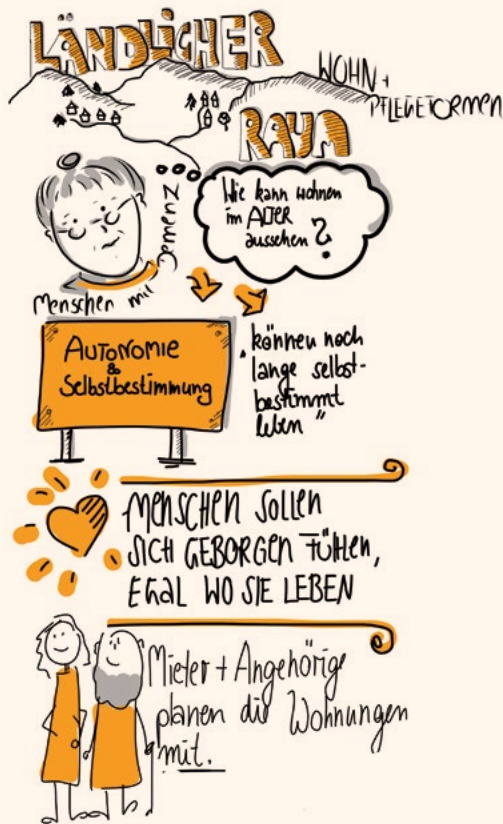 LÄNDLICHER
RAUM
WOHN +
PFLEGEFORMEN
Menschen mit Demenz
Wie kann wohnen
im ALTER
aussehen?
AUTONOMIE
&
Selbstbestimmung
"können noch
lange selbst-
bestimmt
leben"
MENSCHEN SOLLEN
SICH GEBORGEN FÜHLEN,
EGAL WO SIE LEBEN
Mieter + Angehörige
planen die Wohnungen
mit.